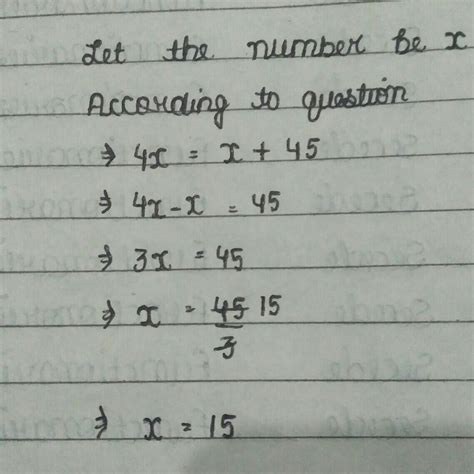 Let the number be x
According to question
⇒ 4x = x + 45
⇒ 4x - x = 45
⇒ 3x = 45
⇒ x = 45 15
3
⇒ x = 15